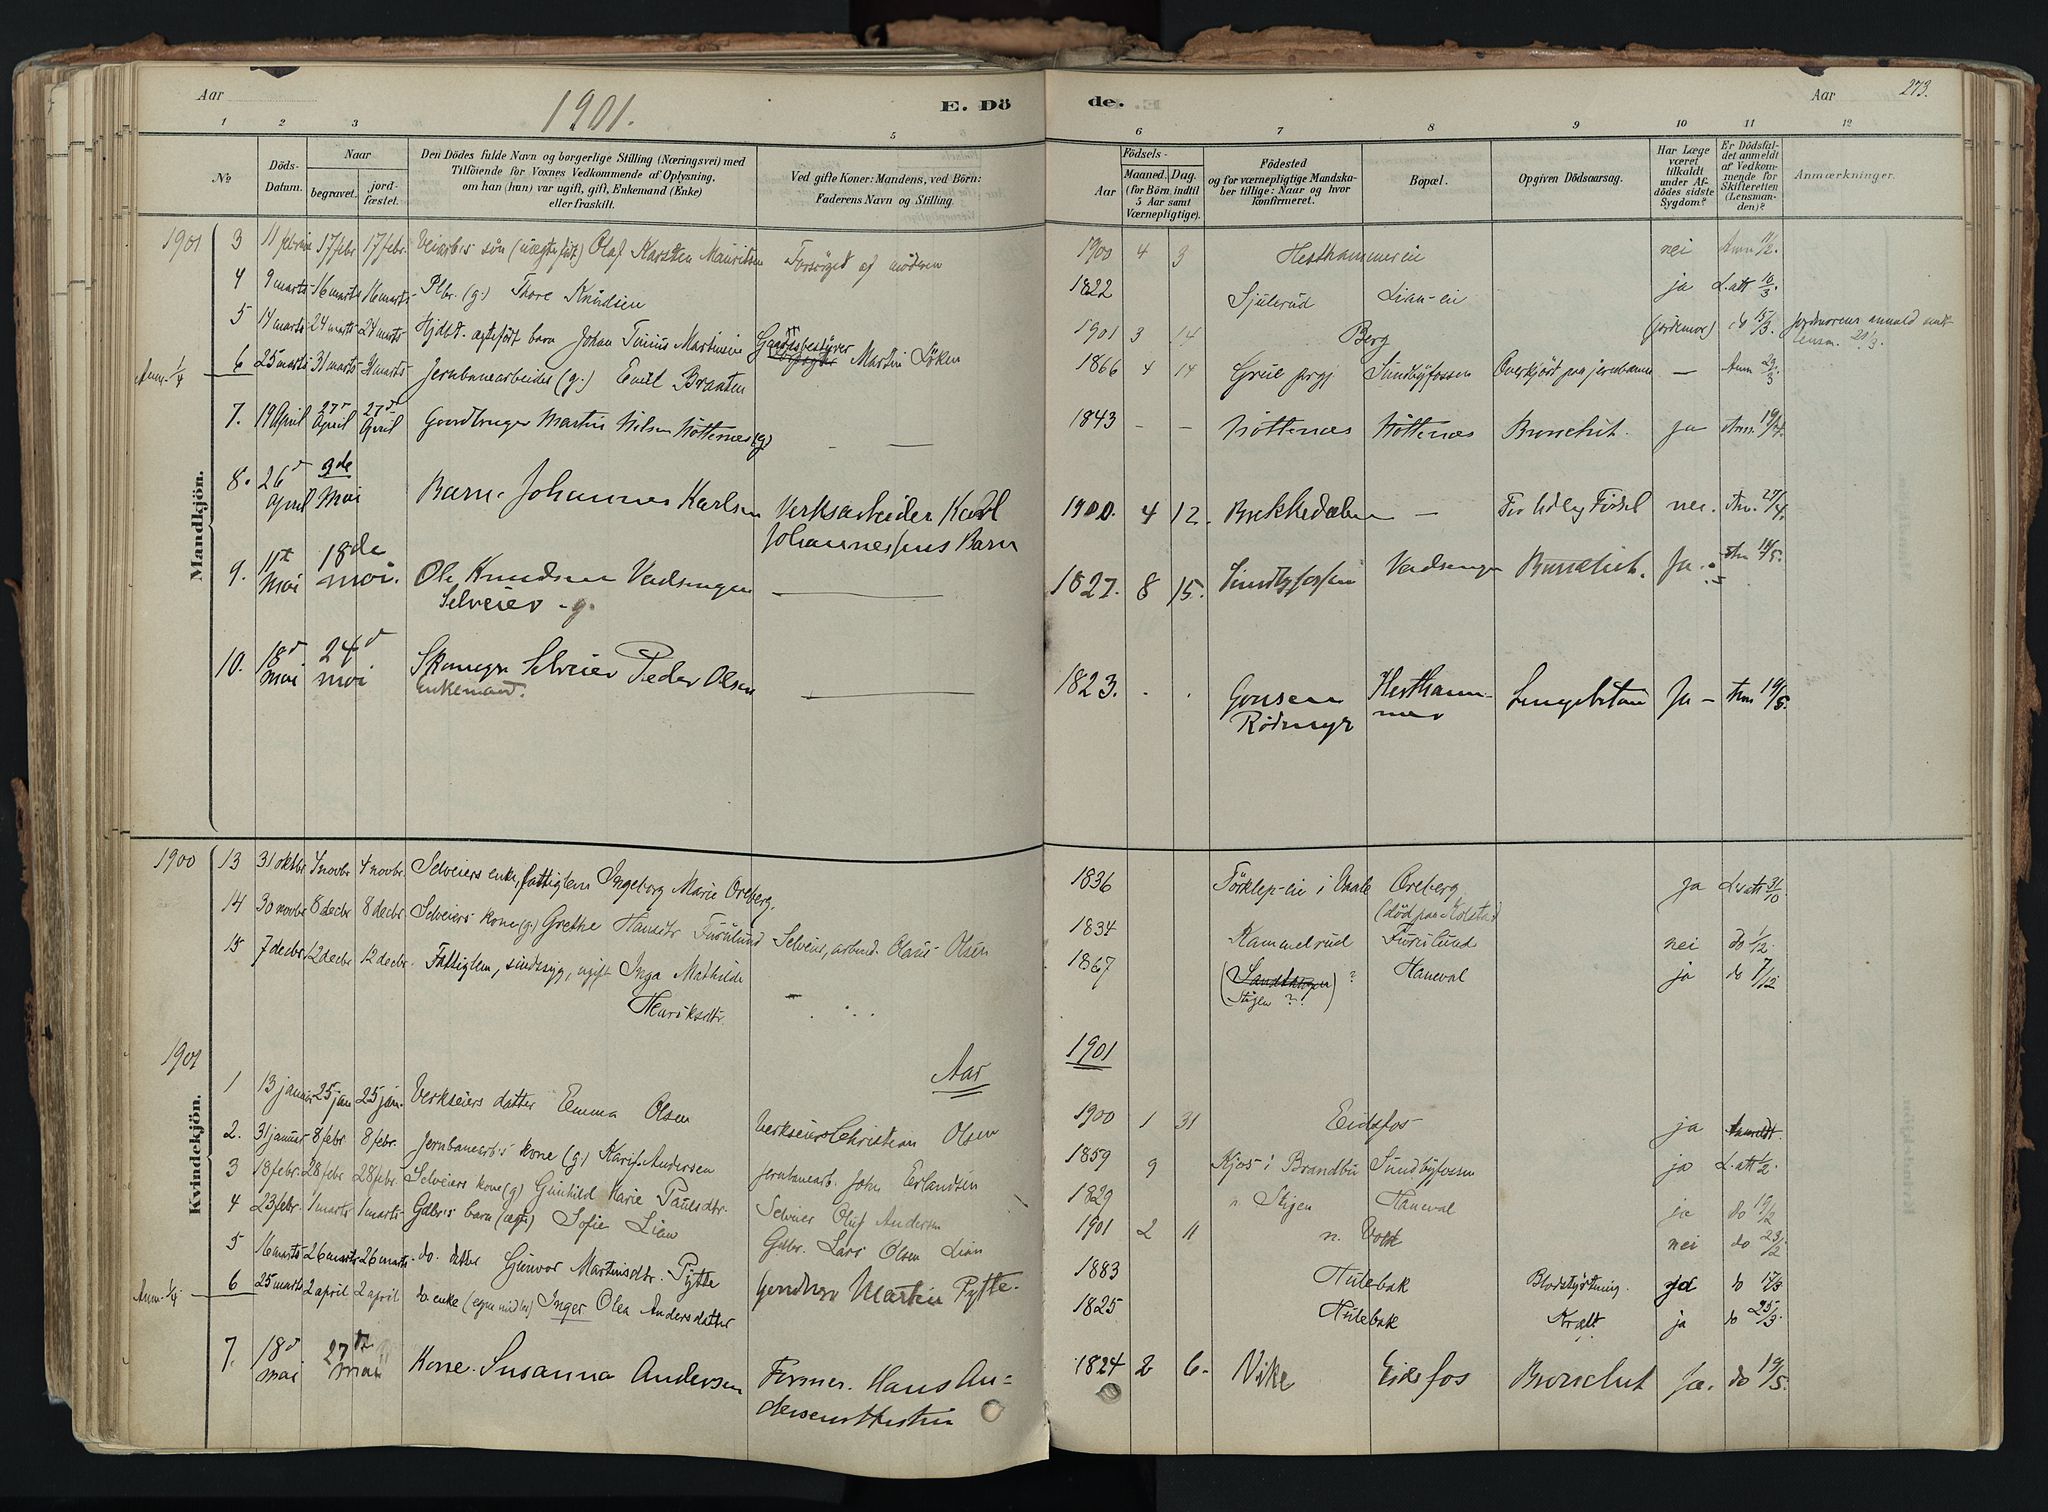 Aar 1901. E. Dö de. Aar 273.
1 2 3 5 6 7 8 9 10 11 12
№ Döds-Datum. Naar begravet. jord-fæstet. Den Dödes fulde Navn og borgerlige Stilling (Næringsvei) med Tilföiende for Voxnes Vedkommende af Oplysning, om han (hun) var ugift, gift, Enkemand (Enke) eller fraskilt. Ved gifte Koner: Mandens, ved Börn: Faderens Navn og Stilling. Födsels- Aar Maaned. Dag. (for Börn indtil 5 Aar samt Værnepligtige). Födested og for værnepligtige Mandskaber tillige: Naar og hvor konfirmeret. Bopæl. Opgiven Dödsaarsag. Har Læge været tilkaldt under Afdödes sidste Sygdom? Er Dödsfaldet anmeldt af Vedkommende for Skifteretten (Lensmanden)? Anmærkninger.
Mandkjön.
1901 3 11 febr 17 febr 17 febr. Veiarb's søn Olaf Karsten Mauritsen Forsörget af moderen 1900 4 3 Hesthammer eie nei Anm 11/2.
4 9 marts 16 marts 16 marts Plbr. (g.) Thore Knudsen 1822 Sjulerud Lian-eie ja L. att 10/3.
5 14 marts 24 marts 24 marts barn Johan Tinius Martinsen Gaardsbestyrer Martin Löken 1901 3 14 Berg (jordemor) do 15/3. Jordmorens anmeld
Anm. 1/4 6 25 marts 31 marts 31 marts Jernbanearbeider (g.) Emil Braaten 1866 4 14 Grue prgj Sundbyfossen Overkjört paa jernbanen — Anm 29/3
7. 19 April 27d April 27d April Gaardbruger Martin Nilsen Nöttenæs (g) — — 1843 - - Nöttenæs Nöttenæs Bronchit. ja Anm. 19/4.
8. 26d April 3de Mai Barn. Johannes Karlsen Verksarbeider Karl
Johannesens Barn 1900. 4 12. Brekkedalen — For tidlig Födsel nei. Anm. 27/4.
9. 11te Mai 18de mai. Ole Knudsen Vadsengen — 1827. 8 15. Sundbyfossen Vadsengen Bronchit. Ja. Anm 14/5.
Selveier - g.
10. 18d Mai 24d mai Skomgr Selveier Peder Olsen — 1823. . . Gonsen Hestham- Lungebetæn Ja - Anm 19/5.
Enkemand. Rödmyr mer
Kvindekjön.
1900 13 31 oktbr 4 novbr 4 novbr. Selveiers enke, fattiglem Ingeborg Marie Oreberg. 1836 i Vaale Oreberg ja L. att 31/10
14 30 novbr 8 decbr 8 decbr. Selveiers kone (g.) Grethe Hansdtr Furulund Selveier, arbmd. Olaus Olsen 1834 Kammelrud Furulund nei do 1/12.
15 7 decbr 12 decbr 12 decbr. Fattiglem, sindssyg, ugift Inga Mathilde 1867 ? Haneval ja do 7/12
Henriksdtr. (Stigen ?)
1901 Aar 1901
1 13 januar 25 jan 25 jan. Verkseiers datter Emma Olsen Verkseier Christian Olsen 1900 1 31 Eidsfos ja Anmeldt.
2. 31 januar 8 febr 8 febr. Jernbanearb's kone (g) Kari Andersen Jernbanearb. Johs Erlandsen 1859 9 Kjos i Brandbu Sundbyfossen ja L. att 1/2.
3 18 febr. 28 febr 28 febr. Selveiers kone (g) Gunhild Marie Paulsdtr. Selveier Oluf Andersen 1829 n. Stigen Haneval ja do 19/2
4 23 febr. 1 marts 1 marts Gdbr's barn (ægte) Sofie Lian Gdbr. Lars Olsen Lian 1901 2 11 n. nei do 23/2
5 16 marts 26 marts 26 marts do. datter Gunvor Martinsdtr. Pytte Gaardbrgr Martin Pytte. 1883 Hulebak Blodstyrtning. ja do 17/3
Anm. 1/4 6 25 marts 2 april 2 april do. enke Inger Olea Andersdatter 1825 Hulebak Kræft ja do 25/3.
7. 18d mai 27de Mai Kone. Susanna Andersen Former. Hans An- 1824 2 6. Vike Eidsfos Bronchit Ja. do 19/5.
dersens Hustru